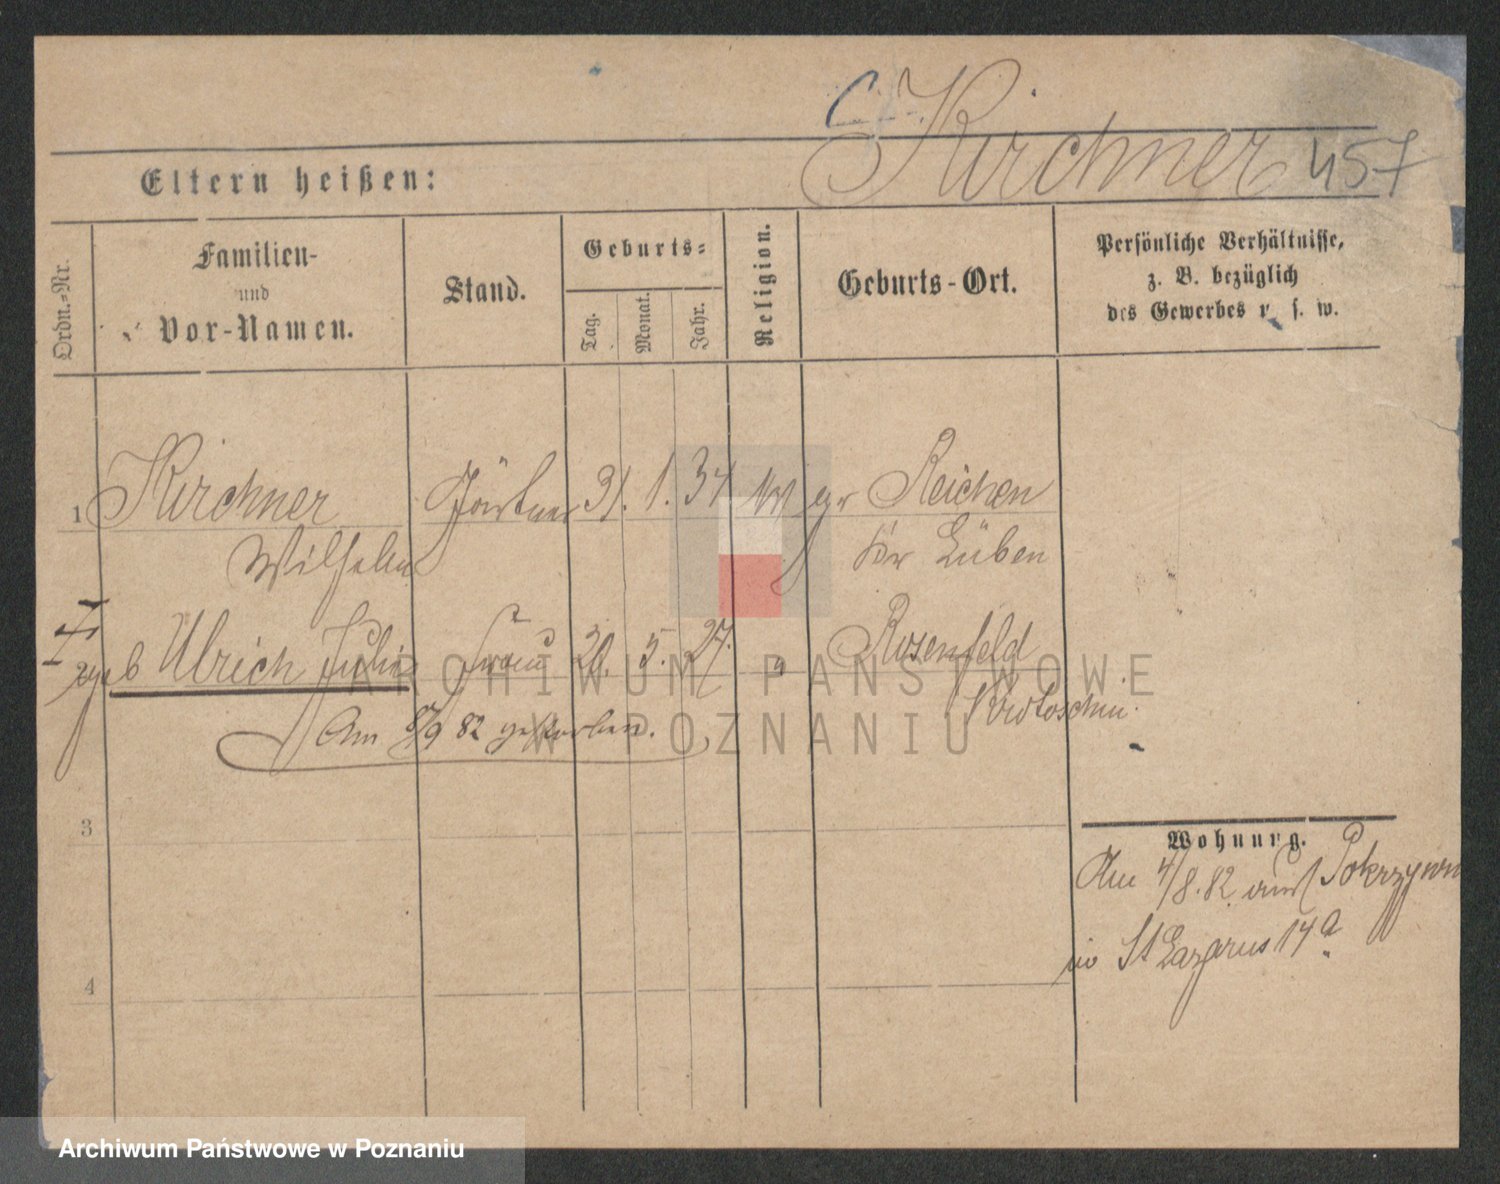 Kirchner 457
Eltern heißen:
Ordn.=Nr.
Familien-
und
Vor-Namen.
Stand.
Geburts=
Tag.
Monat.
Jahr.
Religion.
Geburts-Ort.
Persönliche Verhältnisse,
z. B. bezüglich
des Gewerbes u. s. w.
1 Kirchner Gärtner 31. 1. 34 Reichen
Wilhelm Kr Lüben
geb Ulrich Julie Frau 20. 5. 27. " Rosenfeld
Krotoschin.
Am 8/9 82 gestorben.
3
Wohnung.
Am 4/8. 82 aus Pokrzywn
in St Lazarus 14a
4
ARCHIWUM PAŃSTWOWE
W POZNANIU
Archiwum Państwowe w Poznaniu